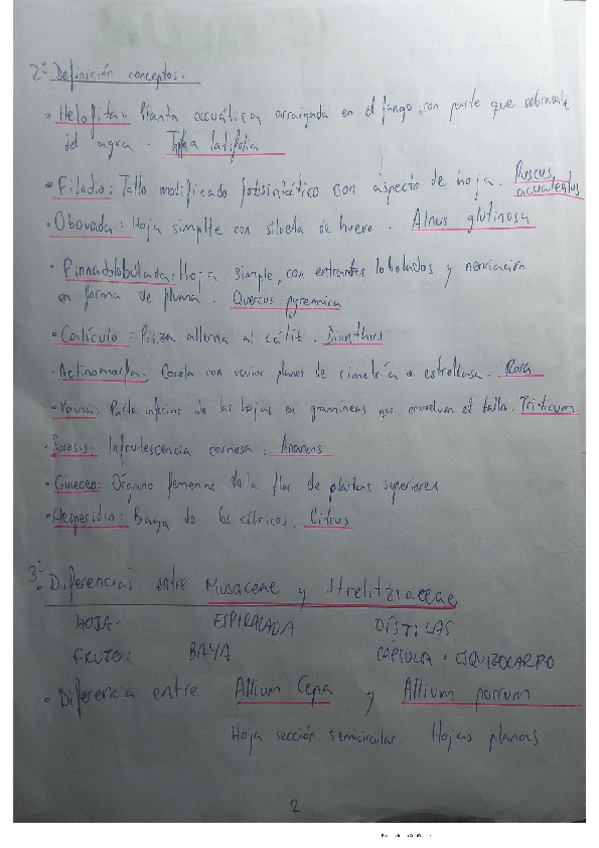 2º Definición conceptos.
• Helofita: Planta acuática arraigada en el fango, con parte que sobresale
del agua. Typha latifolia
• Filodio: Tallo modificado fotosintético con aspecto de hoja. Ruscus
aculeatus
• Obovada: Hoja simple con silueta de huevo. Alnus glutinosa
• Pinnadolobulada: Hoja simple, con entrantes lobulados y nerviación
en forma de pluma. Quercus pyrenaica
• Calículo: Pieza alterna al cáliz. Dianthus
• Actinomorfa: Corola con varios planos de simetría o estrellada. Rosa
• Vaina: Parte inferior de las hojas en gramíneas que envuelven el tallo. Triticum
• Sorosis: Infrutescencia carnosa. Ananas
• Gineceo: Órgano femenino de la flor de plantas superiores
• Hesperidio: Baya de los cítricos. Citrus
3º
• Diferencias entre Musaceae y Strelitziaceae
HOJA: ESPIRALADA DÍSTICAS
FRUTO: BAYA CÁPSULA • ESQUIZOCARPO
• Diferencia entre Allium Cepa y Allium porrum
Hoja sección semicircular Hojas planas
2